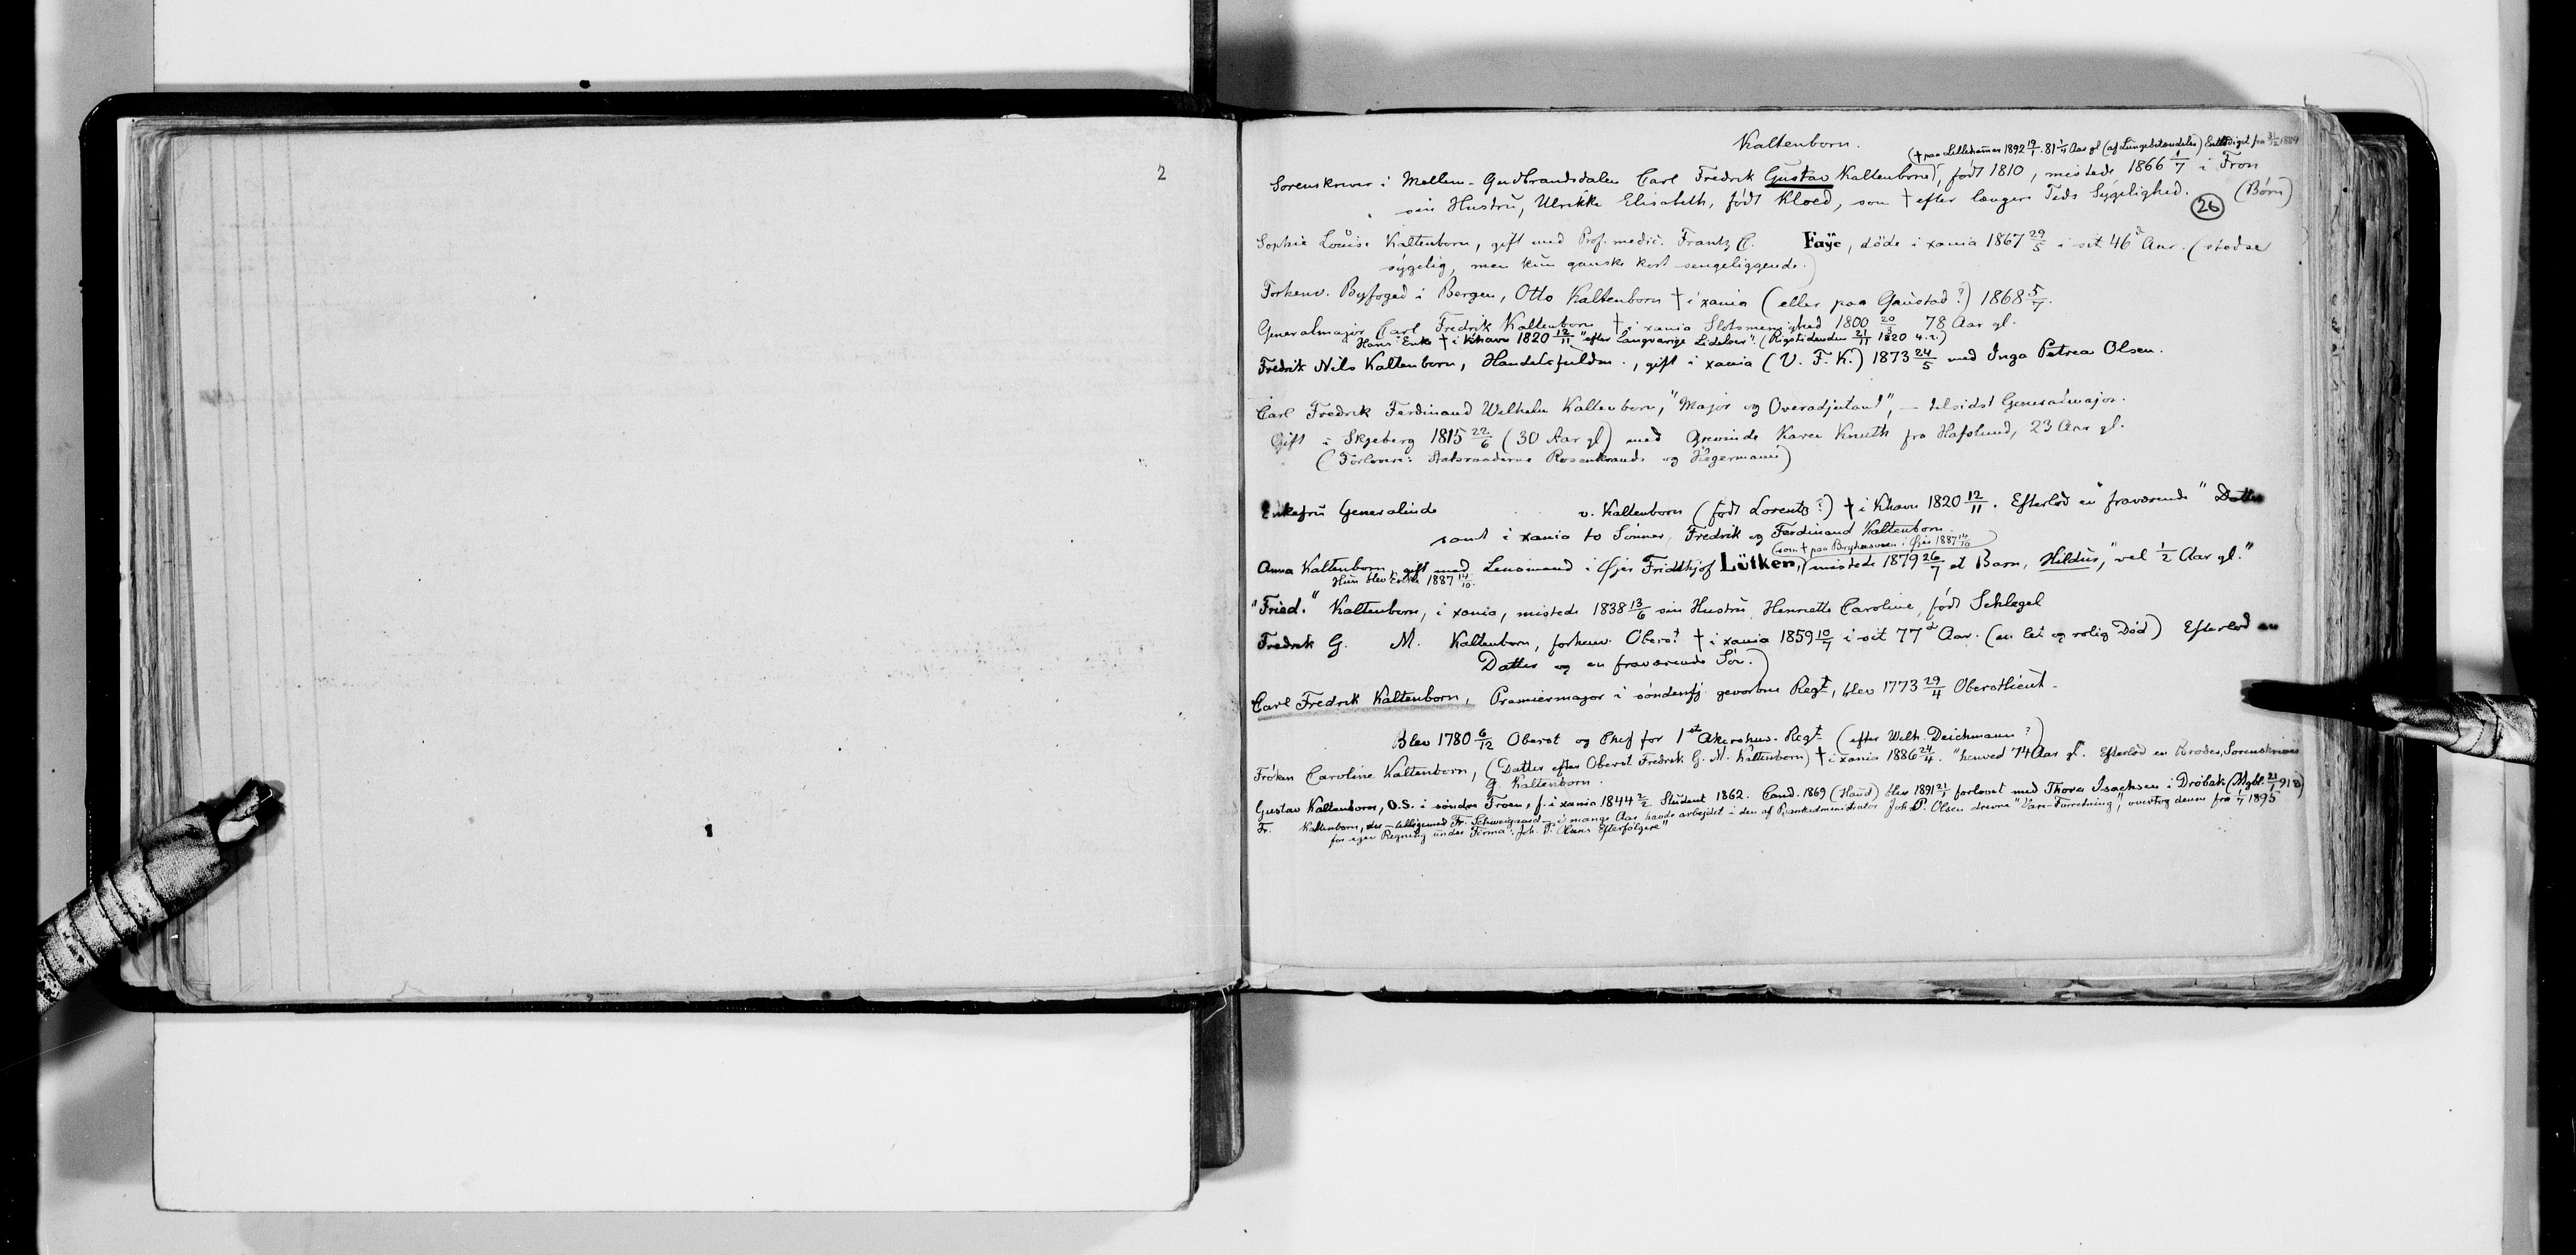 2
Kaltenborn.
(† paa Lillehamer 1892 19/1. 81 1/4 Aar gl (af Lungebetændelse) Entlediget fra 31/12 1884
Sorenskriver i Mellem-Gudbrandsdalen Carl Fredrik Gustav Kaltenborn), født 1810, mistede 1866 1/7 i Fron
sin Hustru, Ulrikke Elisabeth, født Kloed, som † efter længere Tids Sygelighed. (26) (Børn)
Sophie Louise Kaltenborn, gift med Prof. medic. Frantz C. Faÿe, døde i xania 1867 29/5 i sit 46d Aar. (stedse
sygelig, men kun ganske kort sengeliggende.)
Forhenv. Byfoged i Bergen, Otto Kaltenborn † i xania (eller paa Gaustad?) 1868 5/7.
Generalmajor Carl Fredrik Kaltenborn † i xania Slotsmenighed 1800 20/3 78 Aar gl.
Hans Enke † i Khavn 1820 12/11 "efter langvarige Lidelser". (Rigstidenden 21/11 1820 4.2.)
Fredrik Nils Kaltenborn, Handelsfuldm., gift i xania (V. F. K.) 1873 24/5 med Inga Petrea Olsen.
Carl Fredrik Ferdinand Wilhelm Kaltenborn, "Major og Overadjutant", – tilsidst Generalmajor.
Gift i Skjeberg 1815 22/6 (30 Aar gl) med Grevinde Karen Knuth fra Hafslund, 23 Aar gl.
(Forlovere: Statsraaderne Rosenkrands og Hegermann)
Enkefru Generalinde v. Kaltenborn (født Lorentz?) † i Khavn 1820 12/11. Efterlod en "fraværende" Datter
samt i xania to Sønner, Fredrik og Ferdinand Kaltenborn.
(som † paa Bryhnsveen i Øier 1887 14/10)
Anna Kaltenborn, gift med Lensmand i Øjer Fridthjof Lütken, mistede 1879 26/7 et Barn, Hildur, "vel 1/2 Aar gl."
Hun blev Enke 1887 14/10.
"Fried." Kaltenborn, i xania, mistede 1838 13/6 sin Hustru, Henriette Caroline, født Schlegel
Fredrik G. M. Kaltenborn, forhenv. Oberst † i xania 1859 10/7 i sit 77d Aar. (en let og rolig Død) Efterlod en
Datter og en fraværende Søn.)
Carl Fredrik Kaltenborn, Premiermajor i søndenfj. gevorbne Regt, blev 1773 29/4 Oberstlieut.
Blev 1780 6/12 Oberst og Chef for 1ste Akershus. Regt (efter Wilh. Deichmann?)
Frøken Caroline Kaltenborn, (Datter efter Oberst Fredrik G. M. Kaltenborn) † i xania 1886 24/4. "henved 74 Aar gl". Efterlod en Broder, Sorenskriver
G. Kaltenborn.
Gustav Kaltenborn, O.S. i søndre Froen, f. i xania 1844 2/2. Student 1862. Cand. 1869 (Haud) blev 1891 21/1 forlovet med Thora Isachsen i Drøbak (Mgbl. 21/1 91 B)
Fr. Kaltenborn, der – tilligemed Fr. Schweigaard – i mange Aar havde arbejdet i den af Bankadministrator Joh. P. Olsen drevne "Vare-Forretning", overtog denne fra 1/7 1895
for egen Regning under Firma "Joh. P. Olsens Efterfølgere"